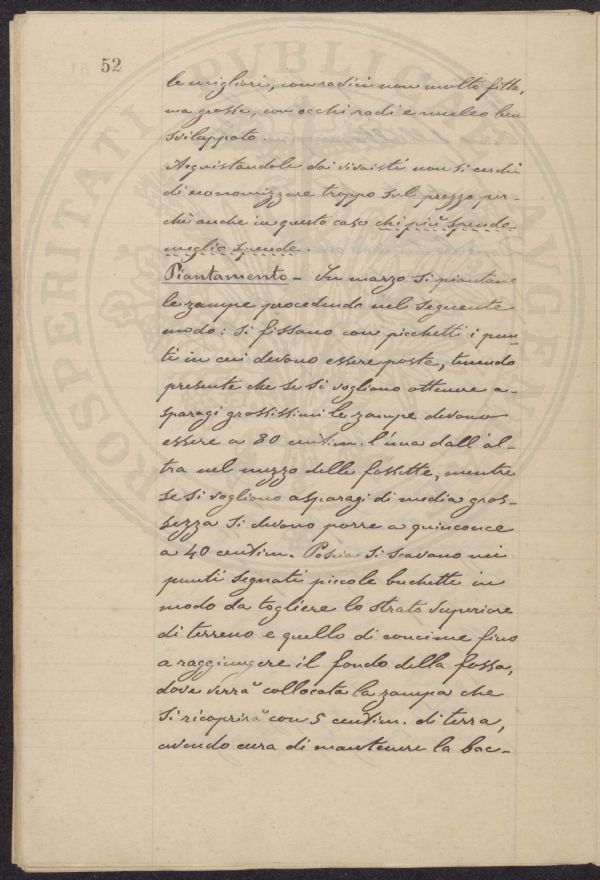 52
le migliori, con radici non molto fitte,
ma grosse, con occhi radi e nucleo ben
sviluppato.
Acquistandole dai vivaisti non si cerchi
di economizzare troppo sul prezzo per-
chè anche in questo caso chi più spende
meglio spende.
Piantamento - In marzo si piantano
le zampe procedendo nel seguente
modo: si fissano con picchetti i pun-
ti in cui devono essere poste, tenendo
presente che se si vogliono ottenere a-
sparagi grossissimi le zampe devono
essere a 80 centim. l'una dall'al-
tra nel mezzo delle fossette, mentre
se si vogliono asparagi di media gros-
sezza si devono porre a quinconce
a 40 centim. Poscia si scavano nei
punti segnati piccole buchette in
modo da togliere lo strato superiore
di terreno e quello di concime fino
a raggiungere il fondo della fossa,
dove verrà collocata la zampa che
si ricoprirà con 5 centim. di terra,
avendo cura di mantenere la bac-